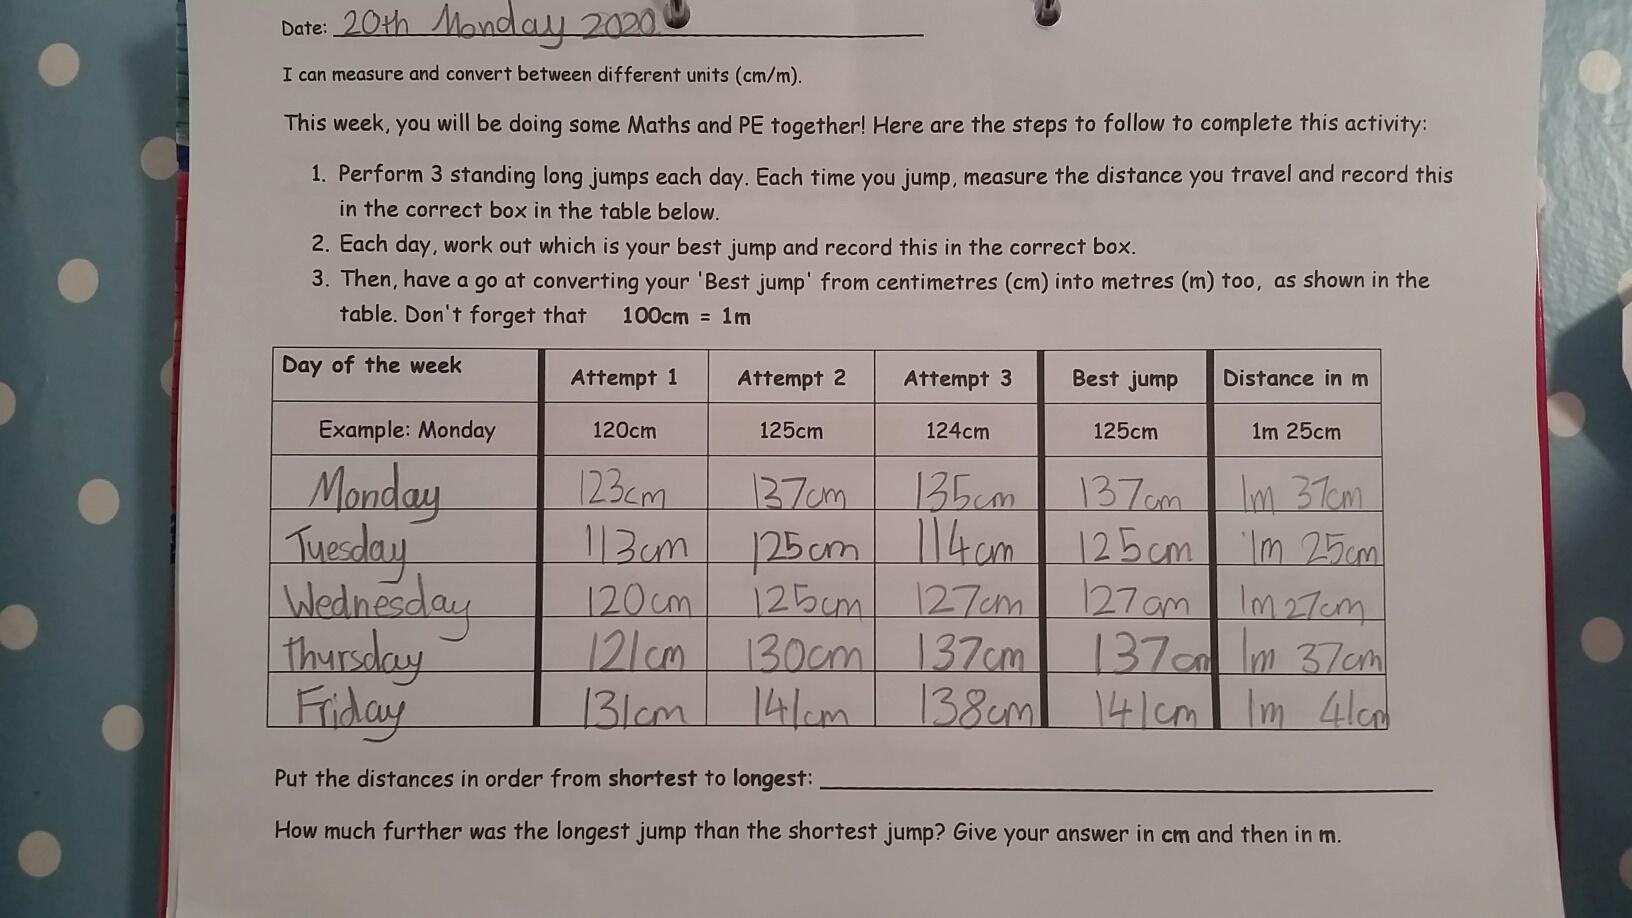 Date: 20th Monday 2020
I can measure and convert between different units (cm/m).
This week, you will be doing some Maths and PE together! Here are the steps to follow to complete this activity:
1. Perform 3 standing long jumps each day. Each time you jump, measure the distance you travel and record this
in the correct box in the table below.
2. Each day, work out which is your best jump and record this in the correct box.
3. Then, have a go at converting your 'Best jump' from centimetres (cm) into metres (m) too, as shown in the
table. Don't forget that 100cm = 1m
Day of the week Attempt 1 Attempt 2 Attempt 3 Best jump Distance in m
Example: Monday 120cm 125cm 124cm 125cm 1m 25cm
Monday 123cm 137cm 135cm 137cm 1m 37cm
Tuesday 113cm 125cm 114cm 125cm 1m 25cm
Wednesday 120cm 125cm 127cm 127cm 1m 27cm
Thursday 121cm 130cm 137cm 137cm 1m 37cm
Friday 131cm 141cm 138cm 141cm 1m 41cm
Put the distances in order from shortest to longest:
How much further was the longest jump than the shortest jump? Give your answer in cm and then in m.